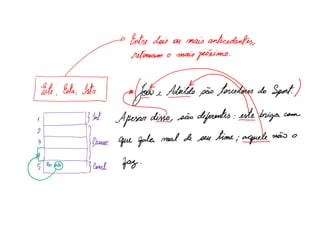 Entre dois ou mais antecedentes,
retomam o mais próximo.
Este, Esta, Isto
(João e Ataíde são torcedores do Sport)
Apesar disso, são diferentes: este briga com
que fala mal de seu time; aquele não o
faz.
1
2
3
4
5
Int
Desenv.
Concl